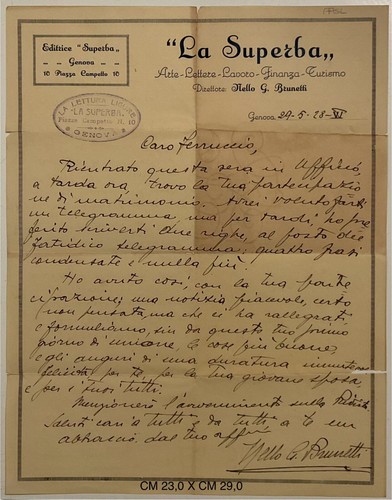 Editrice "Superba"
Genova
10 Piazza Campetto 10
"La Superba„
Arte-Lettere-Lavoro-Finanza-Turismo
Direttore: Nello G. Brunetti
LA LETTURA
"LA SUPERBA"
Piazza Campetto N. 10
GENOVA
Genova 29-5-28-VI
Caro Ferruccio,
Rientrato questa sera in Ufficio,
a tarda ora, trovo la tua partecipazio
ne di matrimonio. Avrei voluto farti
un telegramma, ma per tardi ho pre
ferito scriverti due righe, al posto del
fatidico telegramma: quattro frasi
condensate e nulla più.
Ho avuto così, con la tua parte
cipazione, una notizia piacevole, certo
non pensata, ma che ci ha rallegrati
e formuliamo, sin da questo tuo primo
giorno di unione, le cose più buone,
e gli auguri di una duratura
felicità per te, per la tua giovane sposa,
e per i tuoi tutti.
l'avvenimento sulla Rivista
Saluti cari a tutti e da tutti a te un
abbraccio dal tuo aff.
Nello G. Brunetti
CM 23,0 X CM 29,0